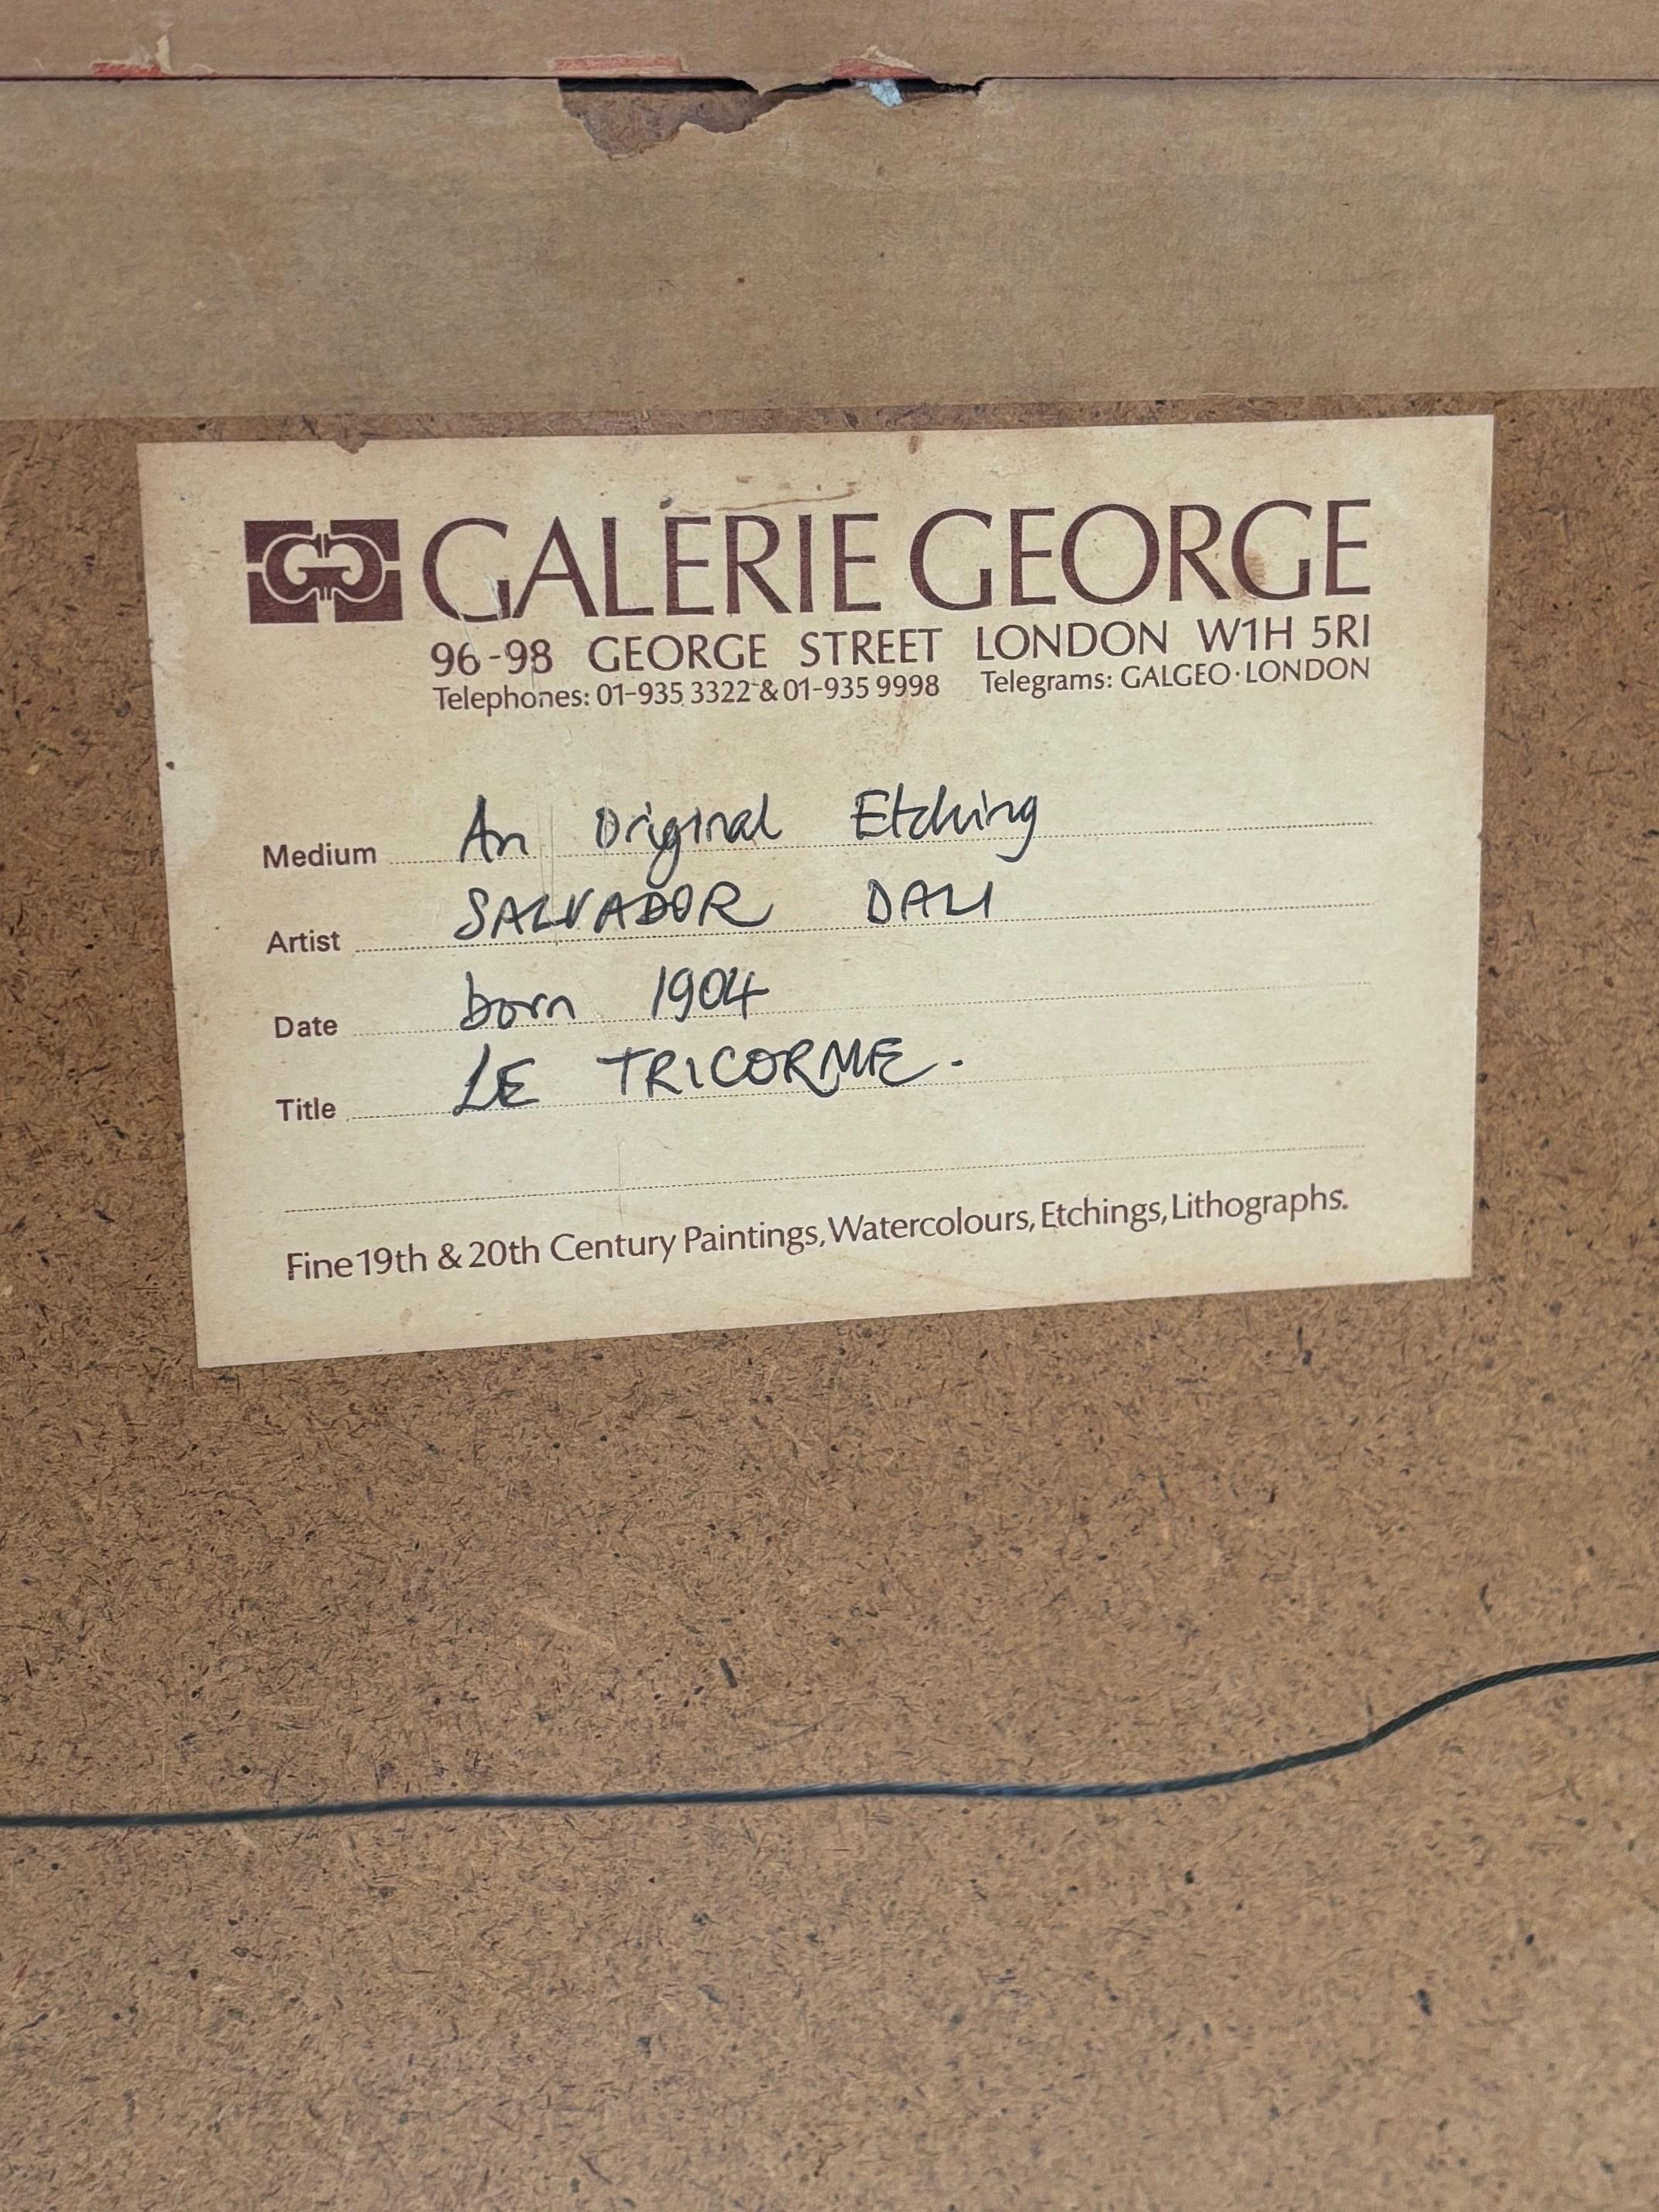 GG GALERIE GEORGE
96-98 GEORGE STREET LONDON W1H 5RI
Telephones: 01-935 3322 & 01-935 9998 Telegrams: GALGEO·LONDON
Medium An Original Etching
Artist SALVADOR DALI
Date born 1904
Title LE TRICORME.
Fine 19th & 20th Century Paintings, Watercolours, Etchings, Lithographs.